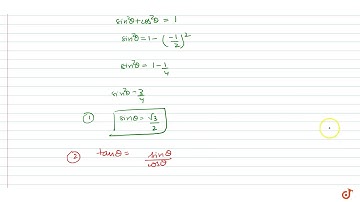 sin²θ+cos²θ = 1
sin²θ = 1 - (-1/2)²
sin²θ = 1 - 1/4
sin²θ = 3/4
① sinθ = √3/2
② tanθ = sinθ/cosθ